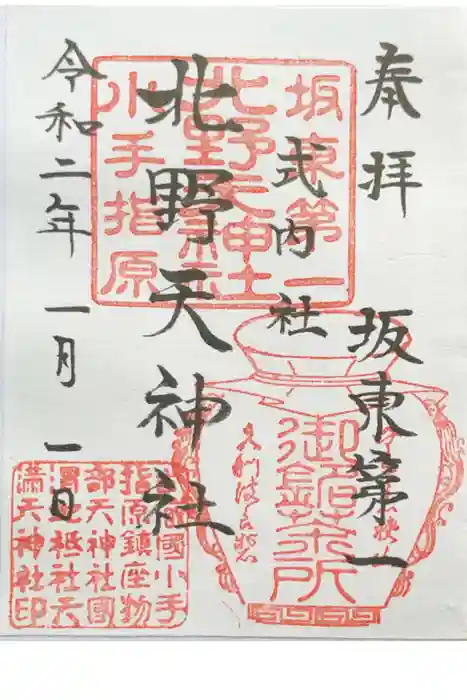 奉拝
坂東第一
式内社
北野天神社
令和二年一月一日
坂東第一
北野天神社
小手指原
御銘茶所
國小手
指原鎮座物
部天神社國
渭地祇社天
満天神社印